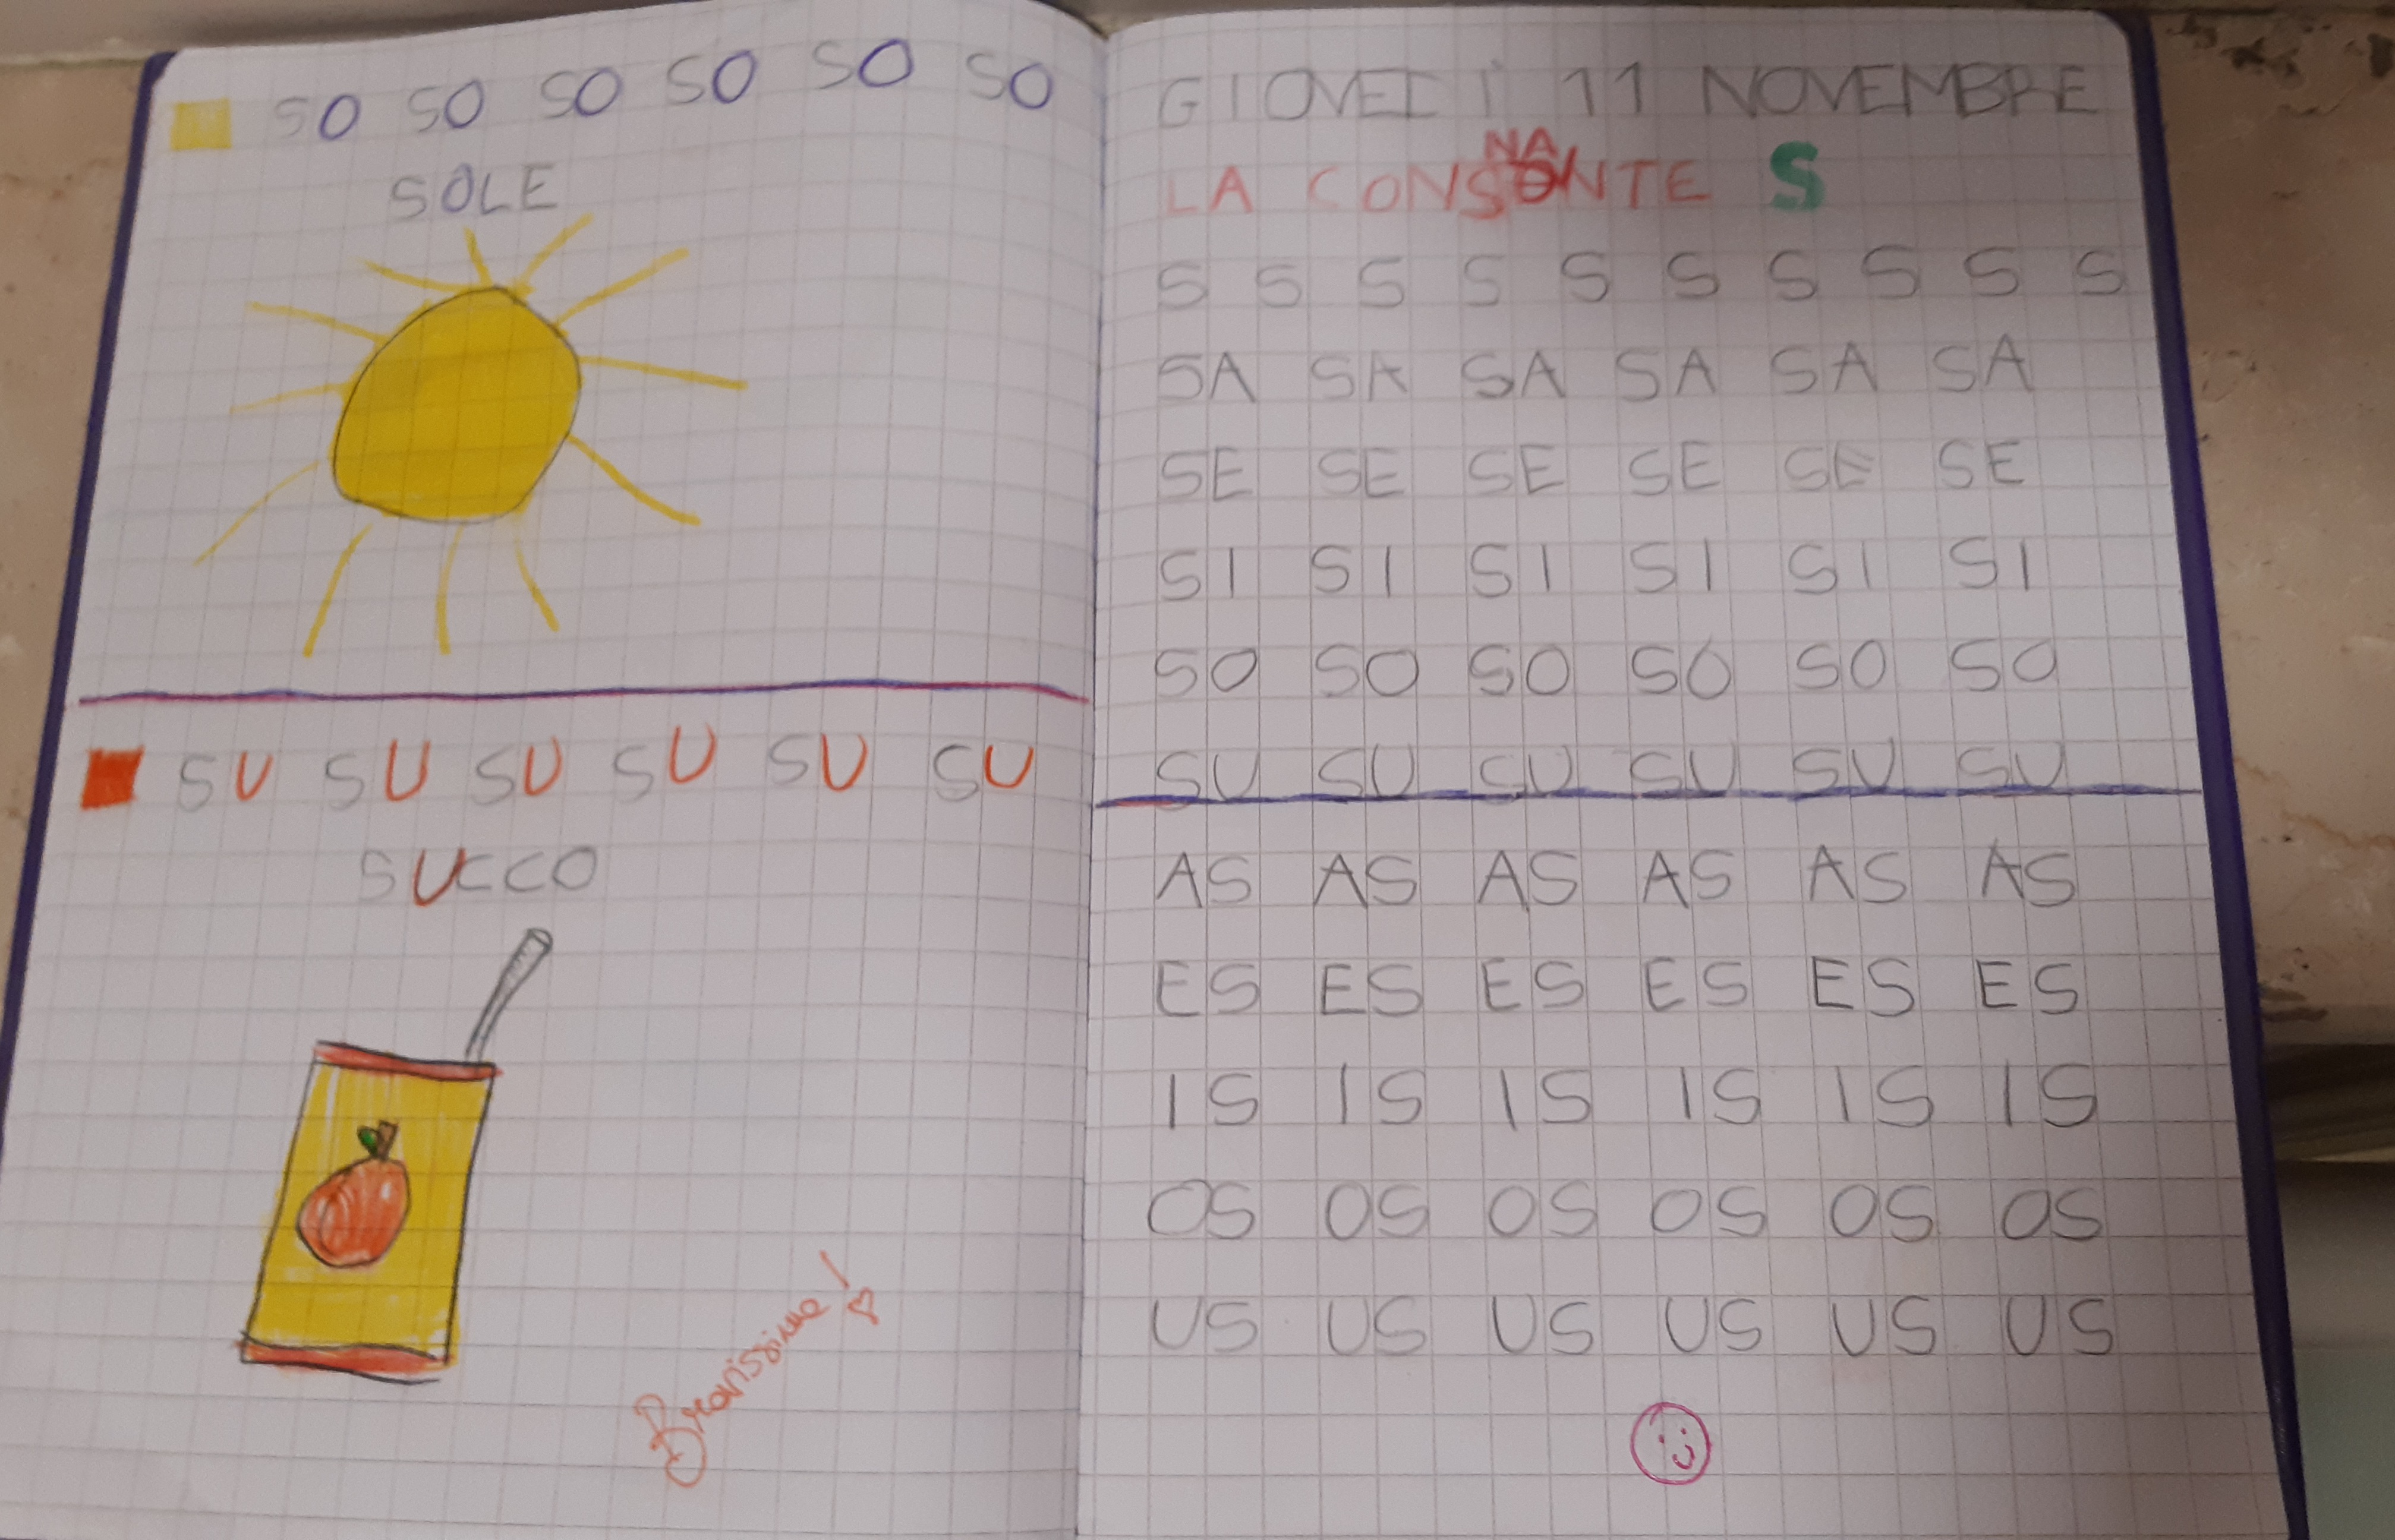 SO SO SO SO SO SO
SOLE
SU SU SU SU SU SU
SUCCO
Bravissima!
GIOVEDÌ 11 NOVEMBRE
LA CONSONANTE S
S S S S S S S S S S
SA SA SA SA SA SA
SE SE SE SE SE SE
SI SI SI SI SI SI
SO SO SO SO SO SO
SU SU SU SU SU SU
AS AS AS AS AS AS
ES ES ES ES ES ES
IS IS IS IS IS IS
OS OS OS OS OS OS
US US US US US US